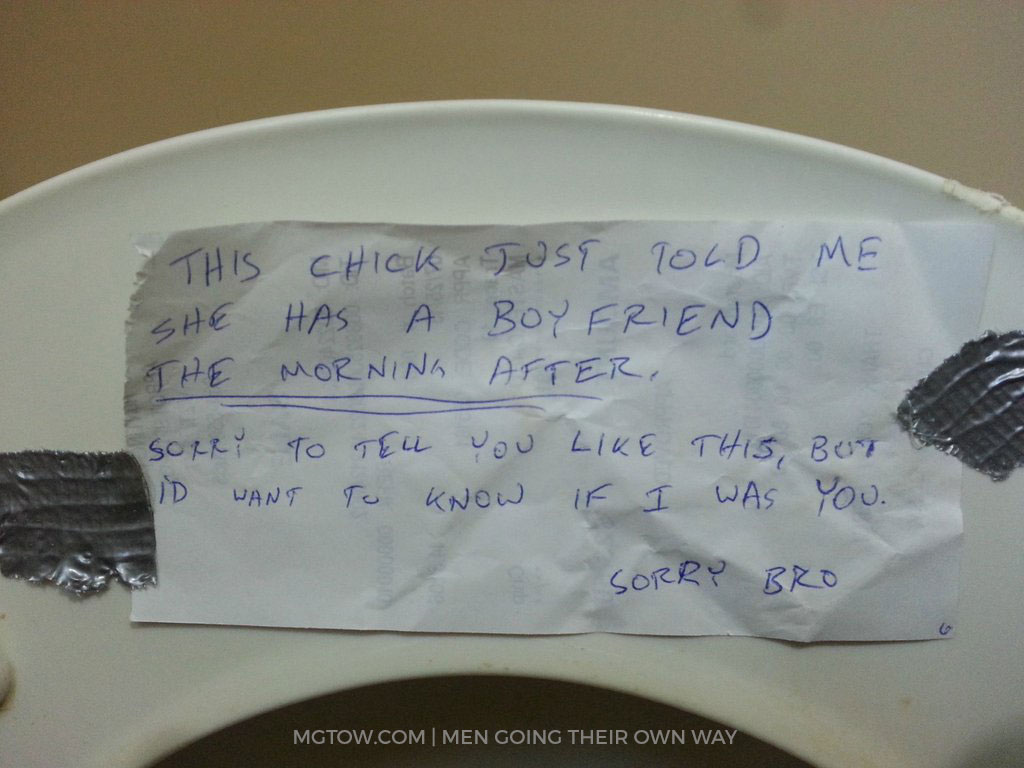 THIS CHICK JUST TOLD ME
SHE HAS A BOYFRIEND
THE MORNING AFTER.
SORRY TO TELL YOU LIKE THIS, BUT
I'D WANT TO KNOW IF I WAS YOU.
SORRY BRO
MGTOW.COM | MEN GOING THEIR OWN WAY